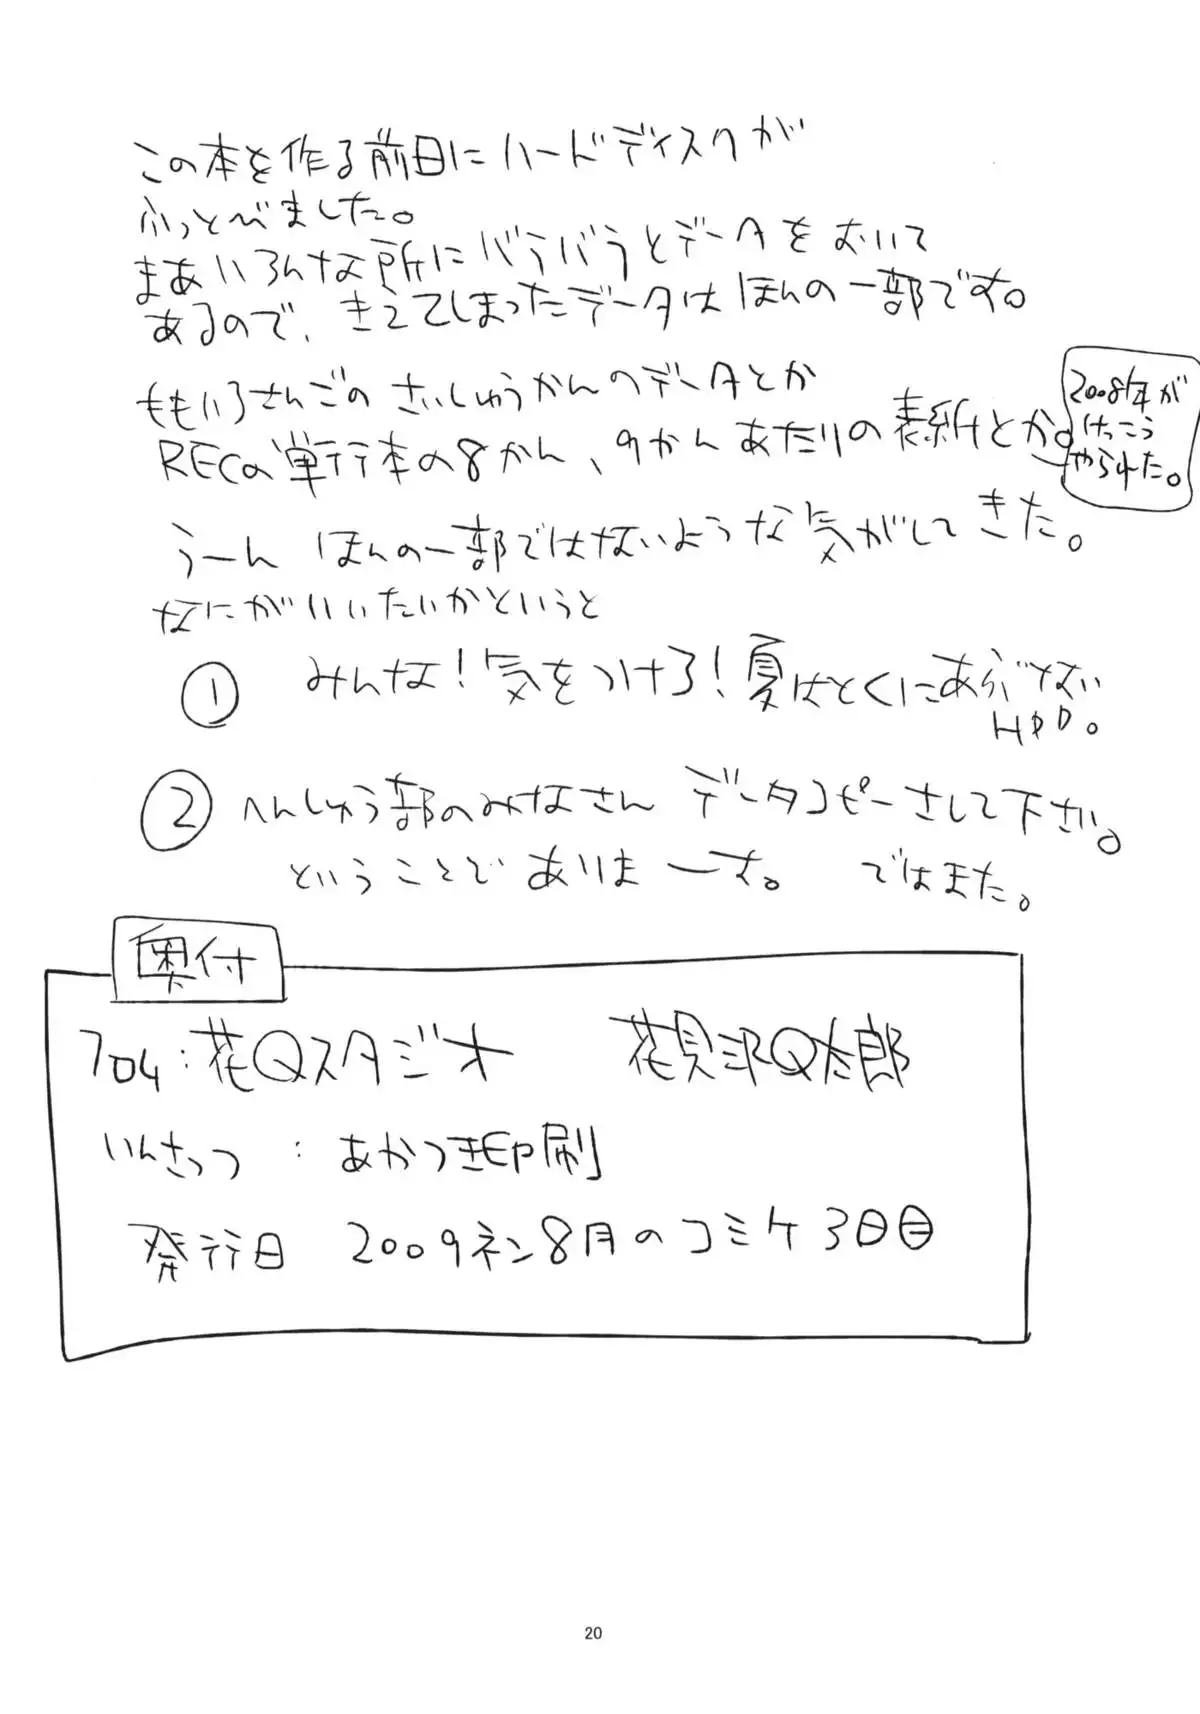 この本を作る前日にハードディスクが
ふっとべました。
まあいろんな所にバラバラとデータをおいて
あるので、きえてしまったデータはほんの一部です。
ももいろさんごのさいしゅうかんのデータとか
RECの単行本の8かん、9かんあたりの表紙とか。
2008年が
けっこう
やられた。
うーん ほんの一部ではないような気がしてきた。
なにがいいたいかというと
① みんな!気をつけろ!夏はとくにあぶない
HDD。
② へんしゅう部のみなさん データコピーさして下さい。
ということでありまーす。 ではまた。
奥付
704:花Qスタジオ 花見沢Q太郎
いんさつ:あかつき印刷
発行日 2009ネン8月のコミケ3日目
20